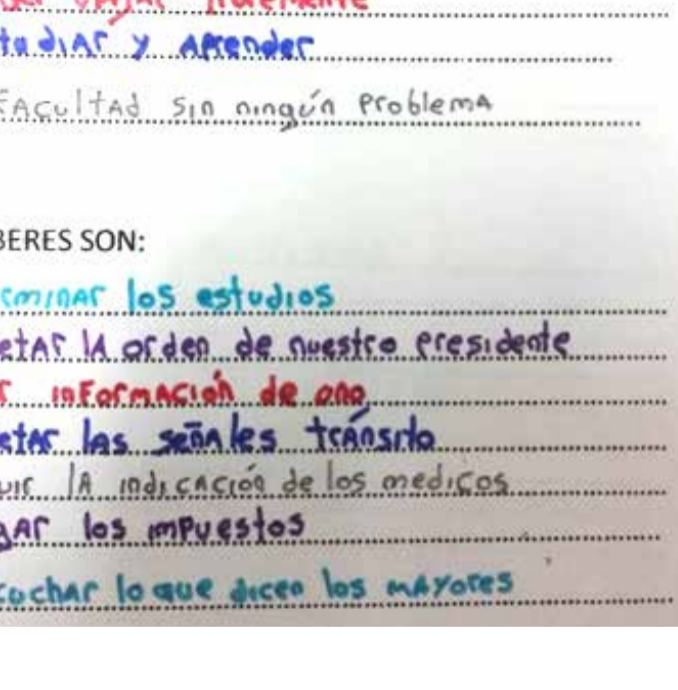 libremente
tudiAr y Aprender
FAcultAd sin ningún problemA
BERES SON:
rminAr los estudios
etAr lA orden de nuestro presidente
r informAción de uno
etAr las señAles tránsito
uir lA indicAción de los medicos
gAr los impuestos
cuchAr lo que dicen los mAyores